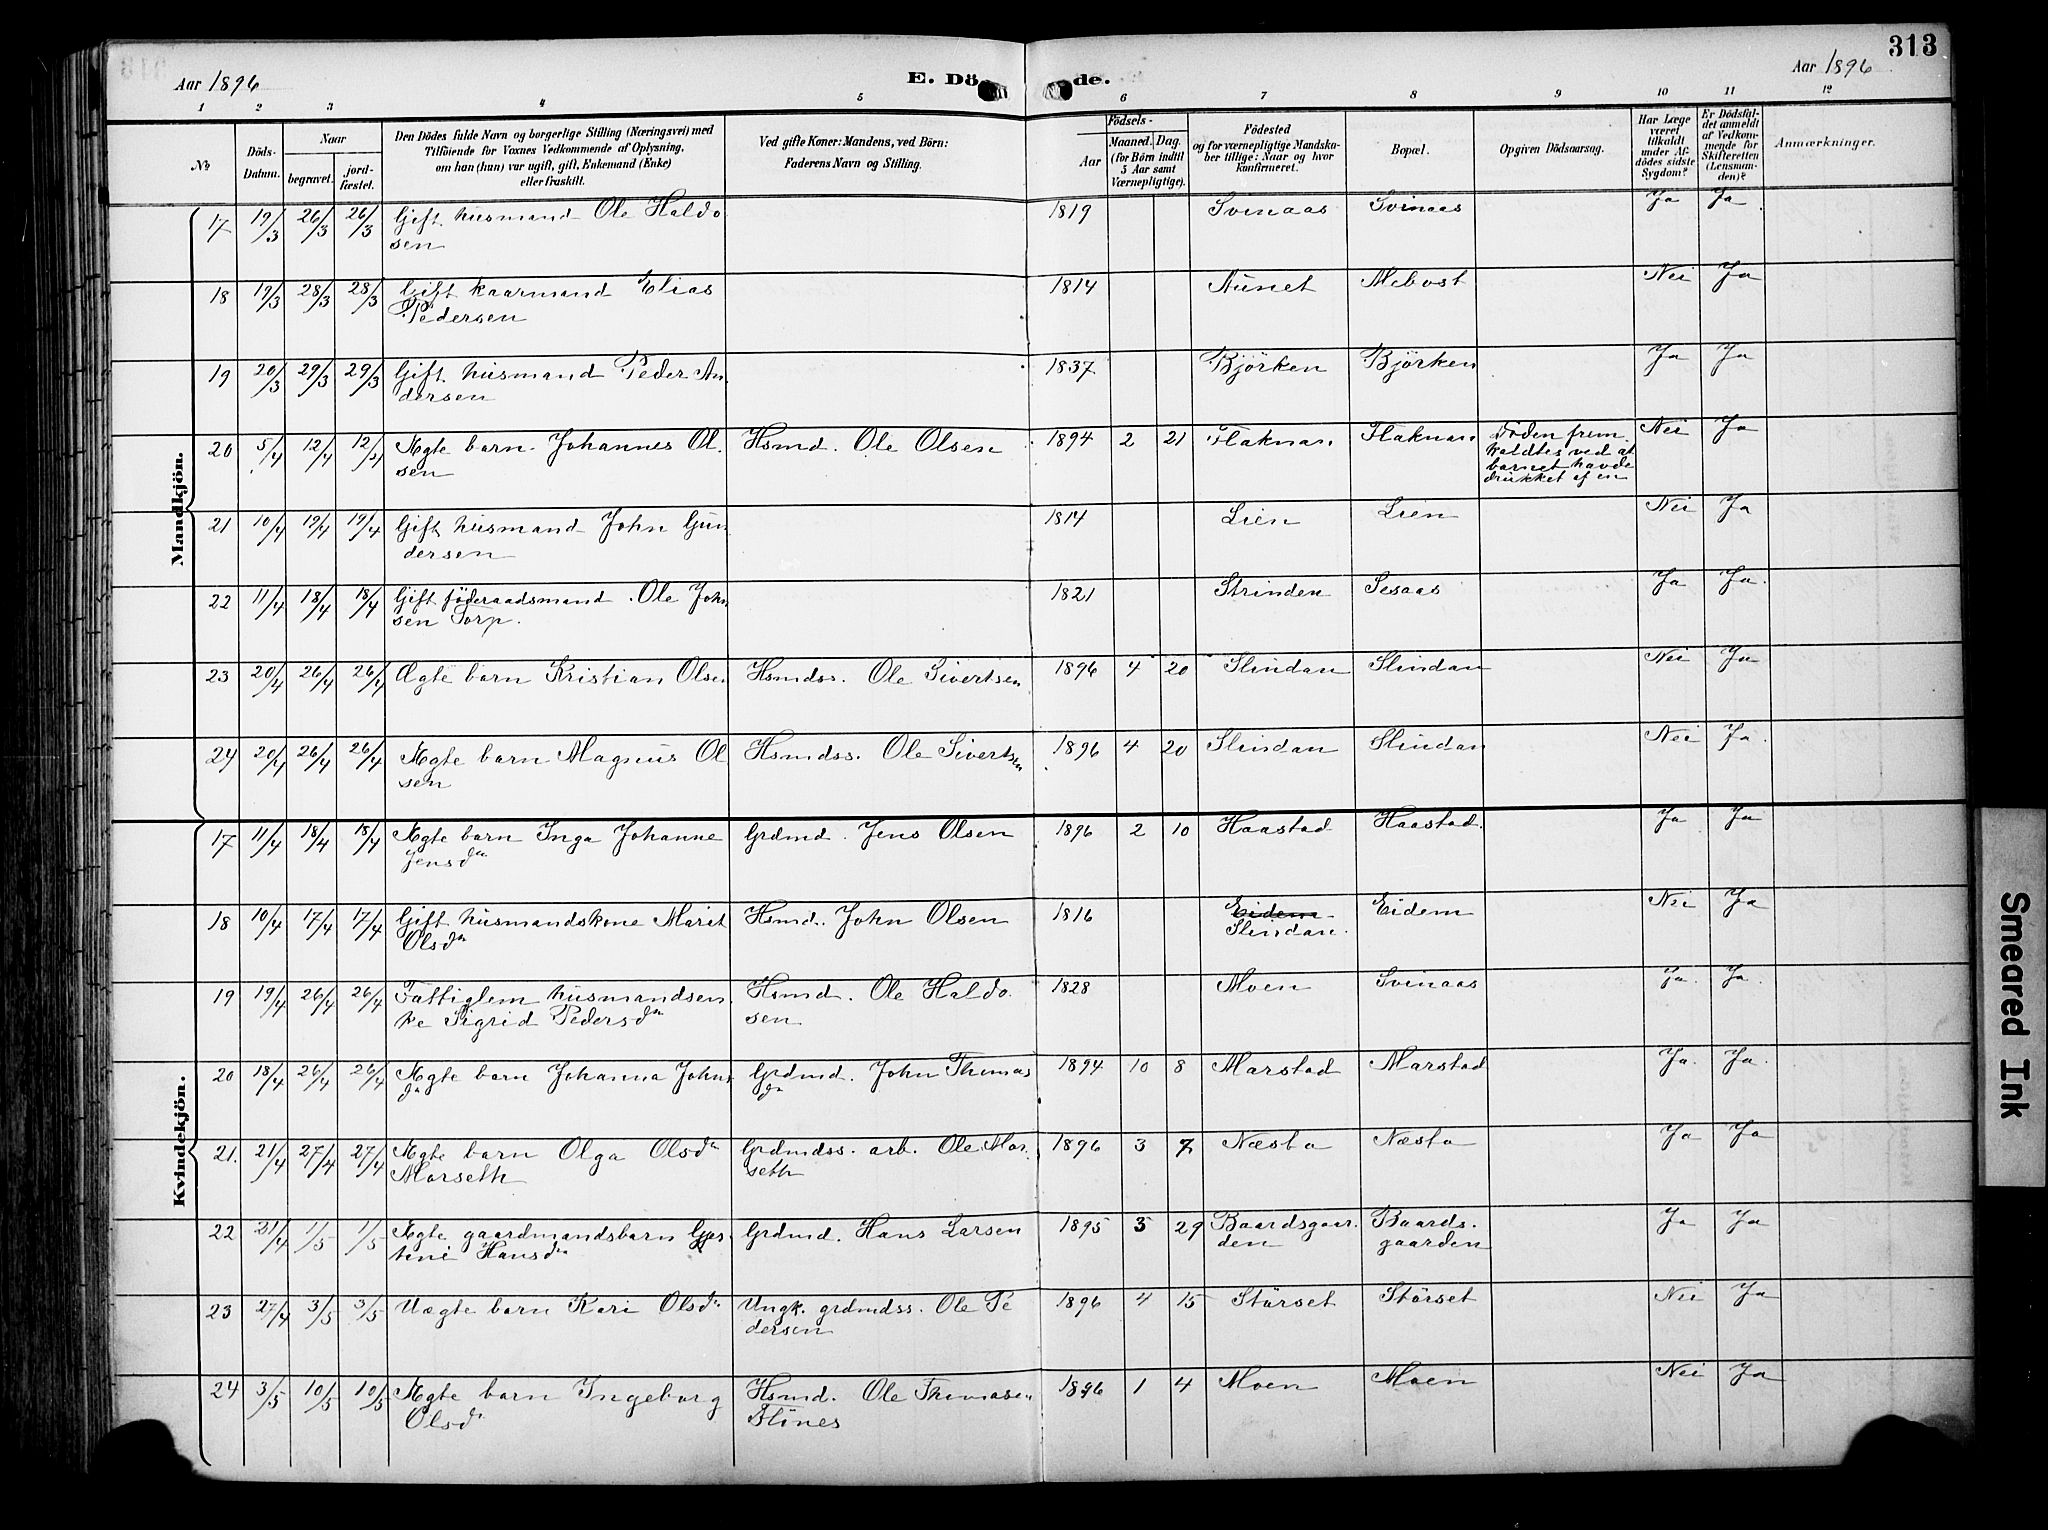 313
Aar 1896
E. Dö de.
Aar 1896
1 2 3 4 5 6 7 8 9 10 11 12
No
Döds-Datum.
Naar
begravet.
jord-fæstet.
Den Dödes fulde Navn og borgerlige Stilling (Næringsvei) med
Tilföiende for Voxnes Vedkommende af Oplysning,
om han (hun) var ugift, gift, Enkemand (Enke)
eller fraskilt.
Ved gifte Koner: Mandens, ved Börn:
Faderens Navn og Stilling.
Födsels-
Aar
Maaned. Dag.
(for Börn indtil
5 Aar samt
Værnepligtige).
Födested
og for værnepligtige Mandska-
ber tillige: Naar og hvor
konfirmeret.
Bopæl.
Opgiven Dödsaarsag.
Har Læge
været
tilkaldt
under Af-
dödes sidste
Sygdom?
Er Dödsfal-
det anmeldt
af Vedkom-
mende for
Skifteretten
(Lensman-
den)?
Anmærkninger.
Mandkjön.
17 19/3 26/3 26/3 Gift husmand Ole Haldo 1819 Svinaas Svinaas Ja Ja
sen
18 19/3 28/3 28/3 Gift kaarmand Elias 1814 Aunet Mebost Nei Ja
Pedersen
19 20/3 29/3 29/3 Gift husmand Peder An 1837 Björken Björken Ja Ja
dersen
20 5/4 12/4 12/4 Ægte barn Johannes Ol Hsmd. Ole Olsen 1894 2 21 Flaknan Flaknan Døden frem Nei Ja
sen kaldtes ved at
barnet havde
drukket af en
21 10/4 19/4 19/4 Gift husmand John Gun 1814 Lien Lien Nei Ja
dersen
22 11/4 18/4 18/4 Gift föderaadsmand Ole John 1821 Strinden Sesaas Ja Ja
sen Torp.
23 20/4 26/4 26/4 Ægte barn Kristian Olsen Hsmdss. Ole Sivertsen 1896 4 20 Slindan Slindan Nei Ja
24 20/4 26/4 26/4 Ægte barn Magnus Ol Hsmdss. Ole Sivertsen 1896 4 20 Slindan Slindan Nei Ja
sen
Kvindekjön.
17 11/4 18/4 18/4 Ægte barn Inga Johanne Grdmd. Jens Olsen 1896 2 10 Haastad Haastad Ja Ja
Jensda
18 10/4 17/4 17/4 Gift husmandskone Marit Hsmd. John Olsen 1816 Eidem Eidem Nei Ja
Olsda Slindan.
19 19/4 26/4 26/4 Fattiglem husmandsen Hsmd. Ole Haldo 1828 Moen Svinaas Ja. Ja.
ke Sigrid Pedersda sen
20 18/4 26/4 26/4 Ægte barn Johanna Johns Grdmd. John Thomas 1894 10 8 Marstad Marstad Ja. Ja.
da
21. 21/4 27/4 27/4 Ægte barn Olga Olsda Grdmdss. arb. Ole Mor 1896 3 7 Næsta Næsta Ja Ja
Morseth seth
22 21/4 1/5 1/5 Ægte gaardmandsbarn Gjes Grdmd. Hans Larsen 1895 5 29 Baardsgaar Baards. Ja Ja
tine Hansda den gaarden
23 27/4 3/5 3/5 Uægte barn Kari Olsda Ungk. grdmdss. Ole Pe 1896 4 15 Störset Störset Nei Ja
dersen
24 3/5 10/5 10/5 Ægte barn Ingeborg Hsmd. Ole Thomasen 1896 1 4 Moen Moen Nei Ja
Olsda
Smeared Ink